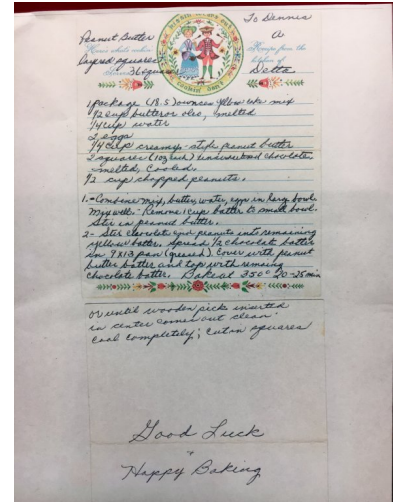 Peanut Butter
Here's what's cookin'
layered squares
36 squares
To Dennis
Recipe from the
kitchen of
Delta
1 package (18.5) ounces yellow cake mix
1/2 cup butter or oleo, melted
1/4 cup water
2 eggs
3/4 cup creamy-style peanut butter
2 squares (1 oz each) unsweetened chocolate,
melted, cooled.
1/2 cup chopped peanuts.
1.- Combine mix, butter, water, eggs in large bowl.
Mix well - Remove 1 cup batter to small bowl.
Stir in peanut butter.
2- Stir chocolate and peanuts into remaining
yellow batter. Spread 1/2 chocolate batter
in 9x13 pan (greased). Cover with peanut
butter batter and top with remaining
chocolate batter. Bake at 350° 20-25 min
or until wooden pick inserted
in center comes out clean.
Cool completely; cut in squares
Good Luck
Happy Baking